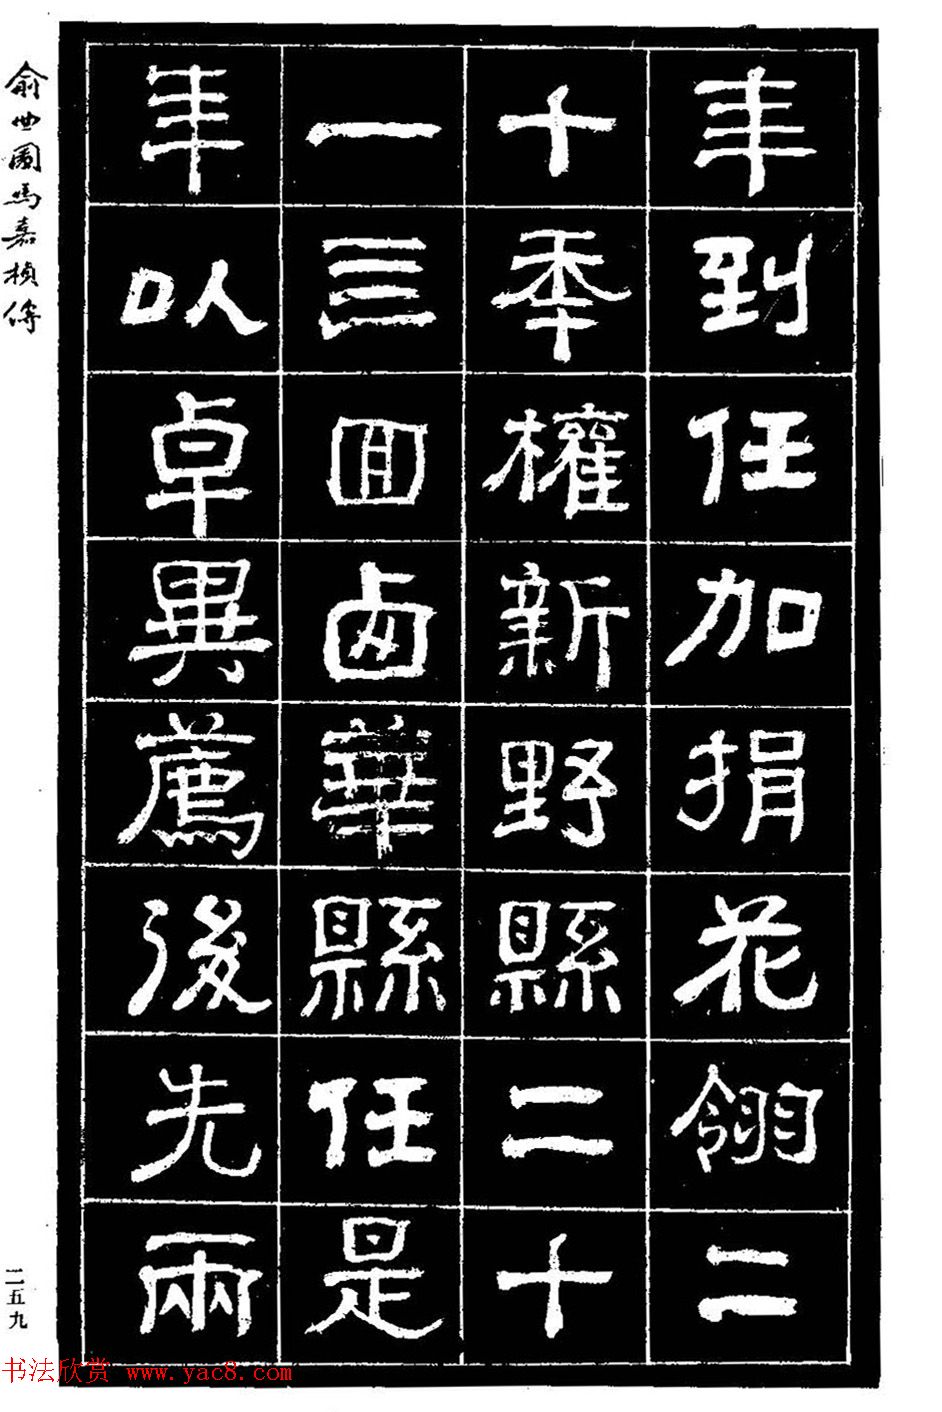 年到任加捐花翎二
十秊權新野縣二十
一三回卥華縣任是
年以卓異薦後先兩
俞曲園馮嘉楨傳
二五九
书法欣赏 www.yac8.com